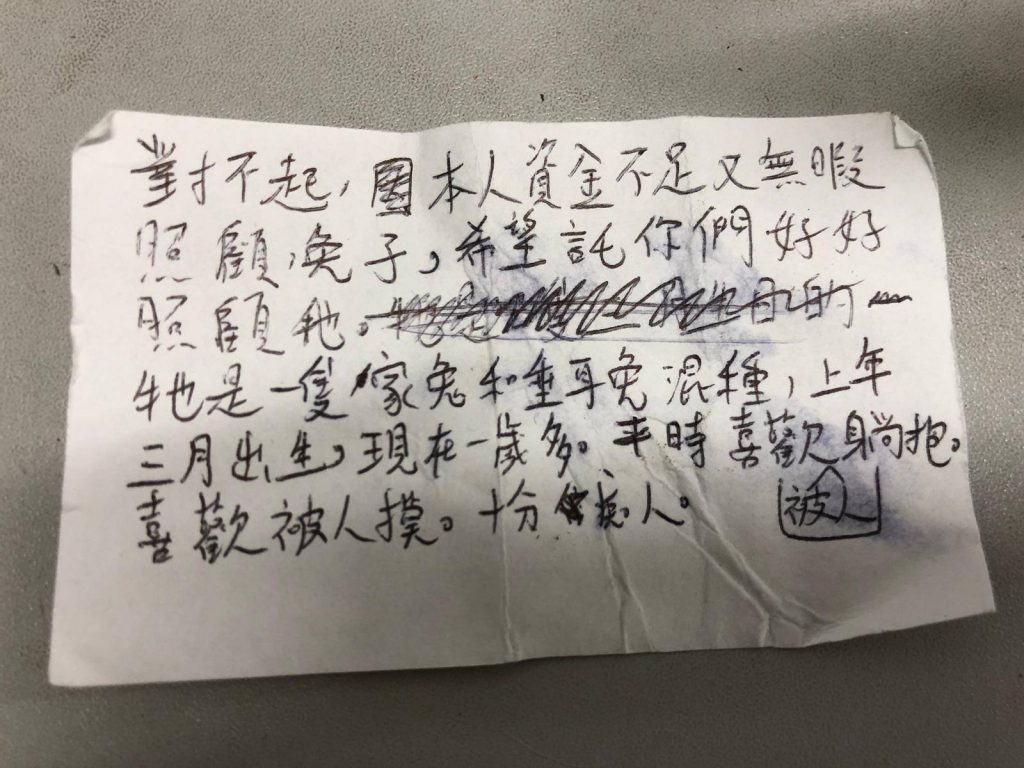 對不起，因本人資金不足又無暇
照顧兔子，希望託你們好好
照顧牠。
牠是一隻家兔和垂耳兔混種，上年
三月出生，現在一歲多。平時喜歡躺抱。
被人
喜歡被人摸。十分痴人。